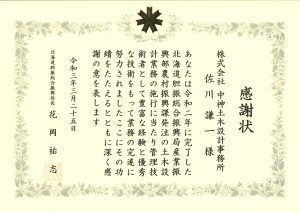 感謝状
株式会社 中神土木設計事務所
佐川謙一様
あなたは令和二年に完了した
北海道胆振総合振興局産業振
興部農村振興課発注の土木設
計業務の施行に当たり管理技
術者として豊富な経験と優秀
な技術をもって業務の完遂に
努力されましたここにその功
績をたたえるとともに深く感
謝の意を表します
令和三年三月二十五日
北海道胆振総合振興局長 花岡祐志